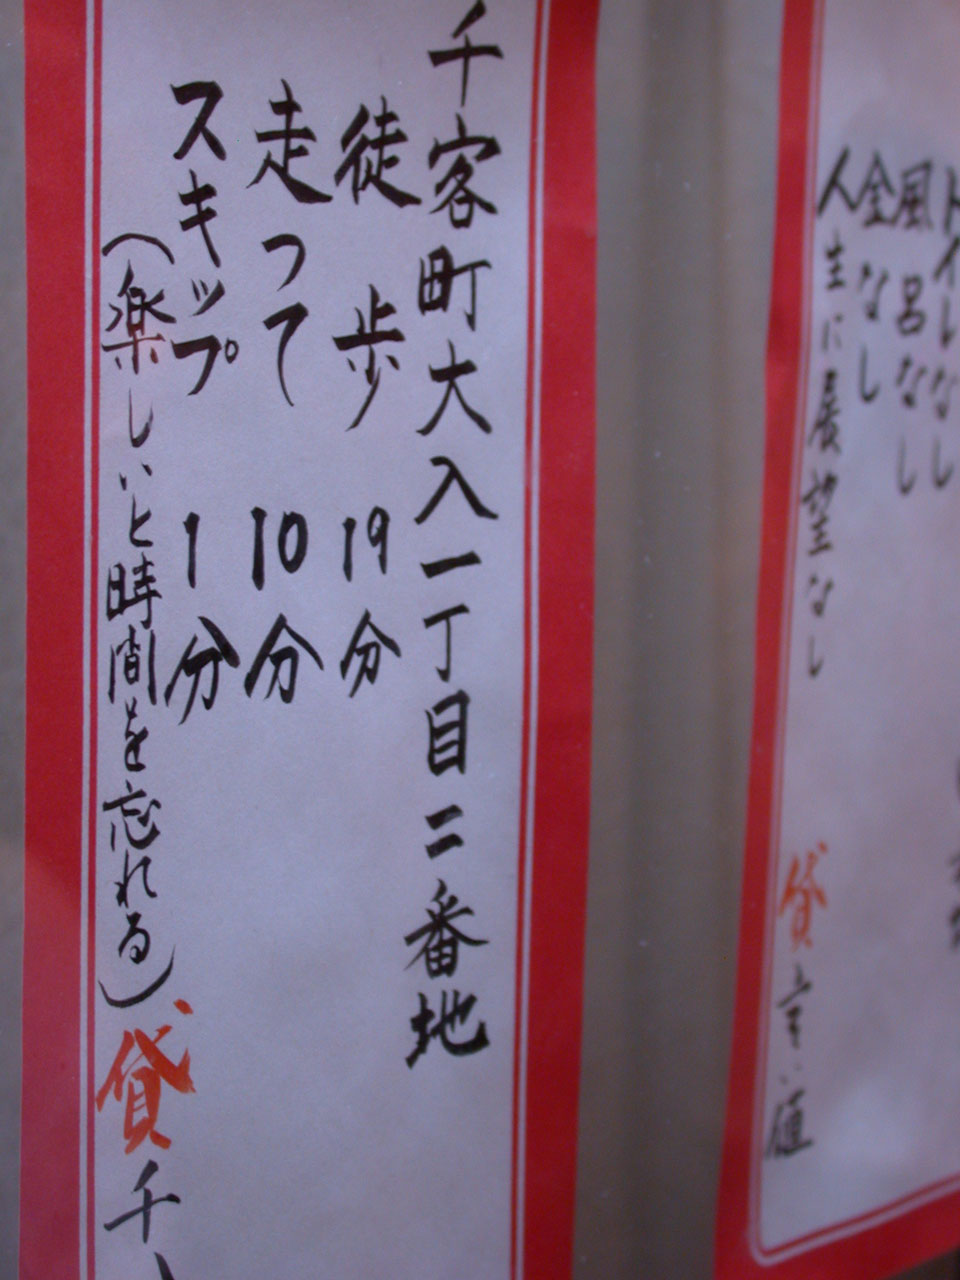 トイレなし
風呂なし
金なし
人生に展望なし
貸 言い値
千客町大入一丁目二番地
徒歩 19分
走って 10分
スキップ 1分
(楽しいと時間を忘れる)
貸 千